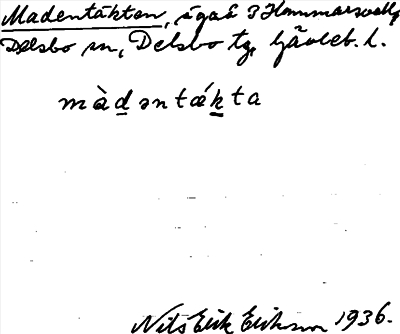 Madentäkten, ägoå 3 Hammarsvall,
Delsbo sn, Delsbo tg, Gävleb. l.
màdəntákta
Nils Erik Erikson 1936.